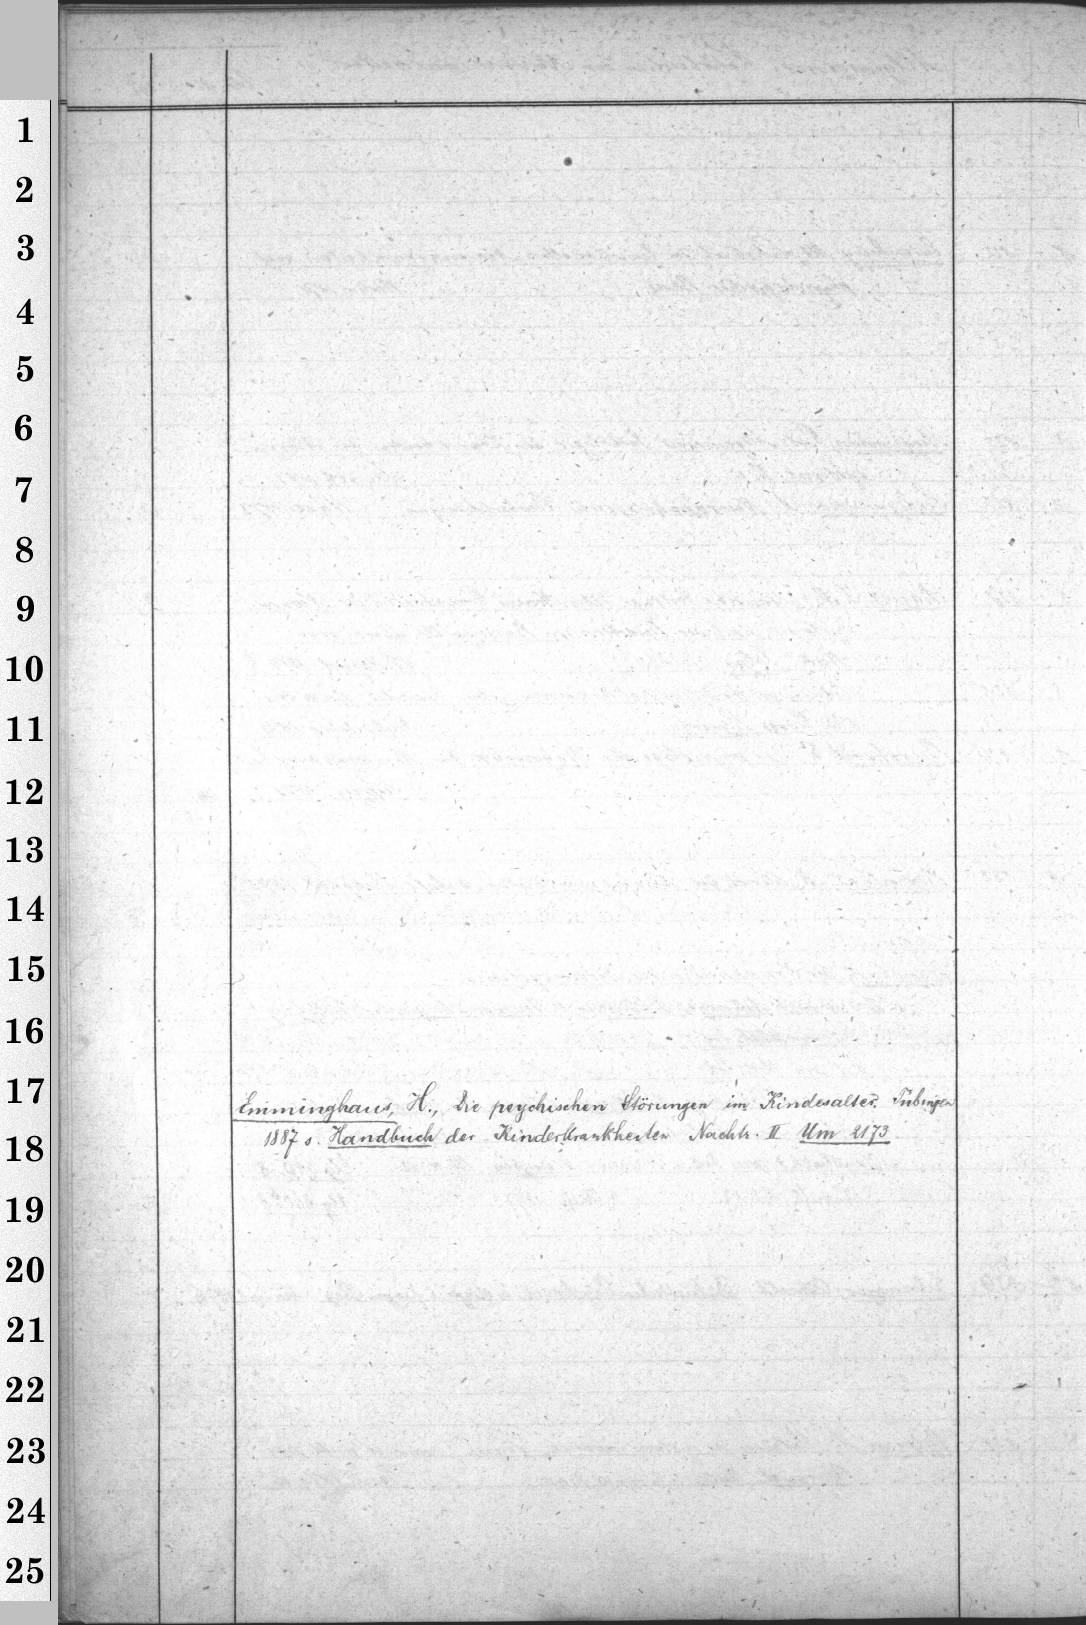 1
2
3
4
5
6
7
8
9
10
11
12
13
14
15
16
17
Emminghaus, H., Die psychischen Störungen im Kindesalter. Tübingen
1887 s. Handbuch der Kinderkrankheiten Nachtr. II Um 2173
18
19
20
21
22
23
24
25